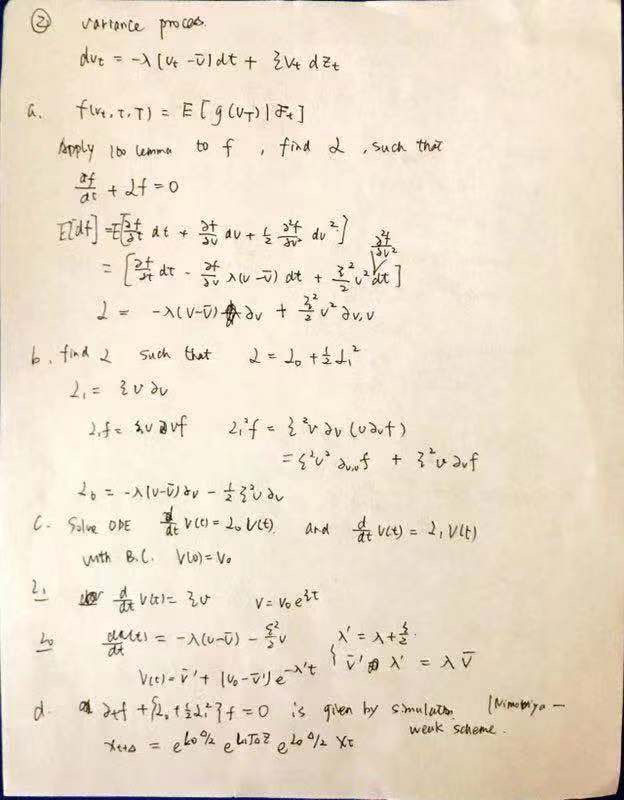 ② variance proces.
dv_t = -λ(v_t - v̄)dt + ξ v_t dZ_t
a. f(v_t, τ, T) = E[g(v_T)|F_t]
Apply Ito lemma to f, find L, such that
∂f/∂t + Lf = 0
E[df] = E[∂f/∂t dt + ∂f/∂v dv + ½ ∂²f/∂v² dv²]
= [∂f/∂t dt - ∂f/∂v λ(v - v̄) dt + ξ²/2 v² ∂²f/∂v² dt]
L = -λ(v-v̄) ∂v + ξ²/2 v² ∂v,v
b. find L such that L = L₀ + ½ L₁²
L₁ = ξ v ∂v
L₁f = ξv ∂vf L₁²f = ξ²v ∂v (v∂vf)
= ξ²v² ∂v,vf + ξ²v ∂vf
L₀ = -λ(v-v̄)∂v - ½ ξ²v ∂v
C. Solve ODE d/dt V(t) = L₀ V(t) and d/dt V(t) = L₁ V(t)
with B.C. V(0) = V₀
L₁ d/dt V(t) = ξv V = V₀ e^{ξt}
L₀ dv(t)/dt = -λ(v-v̄) - ξ²/2 v { λ' = λ + ξ/2
V(t) = v̄' + (v₀ - v̄')e^{-λ't} v̄' λ' = λ v̄
d. ∂tf + {L₀ + ½L₁²}f = 0 is given by simulation (Ninomiya —
weak scheme.
X_{t+Δ} = e^{L₀Δ/2} e^{L₁√Δ Z} e^{L₀Δ/2} X_t